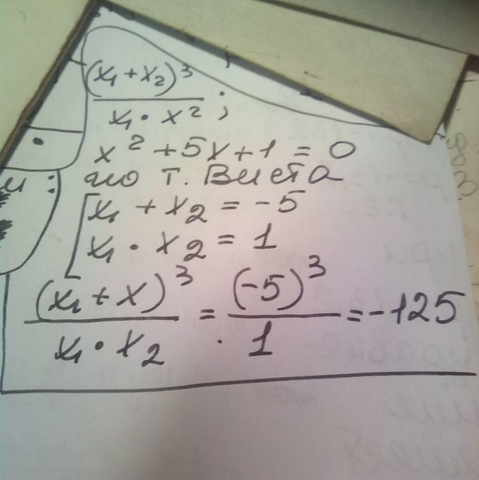 (x₁ + x₂)³ / x₁ · x² ;
x² + 5x + 1 = 0
по т. Виета
x₁ + x₂ = -5
x₁ · x₂ = 1
(x₁ + x)³ / x₁ · x₂ = (-5)³ / 1 = -125